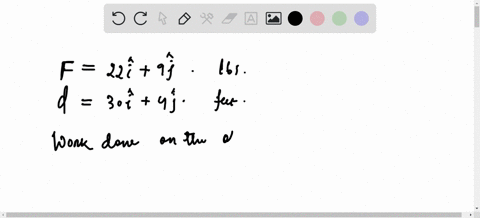 F = 22î + 9ĵ . lbs.
d = 30î + 4ĵ . feet.
Work done on the d